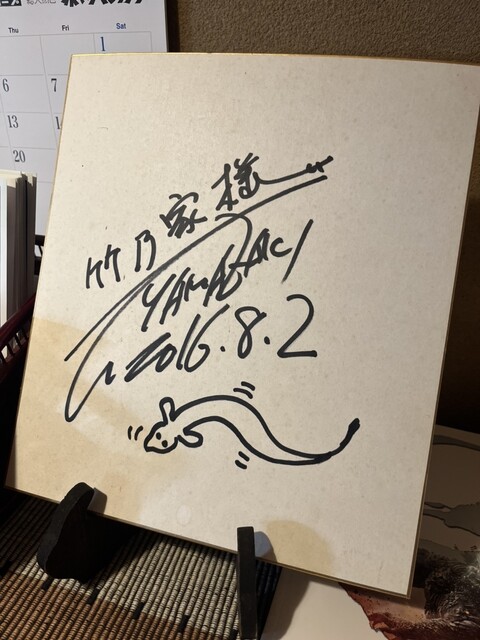 Thu Fri
1
6 7
13
20
竹乃家様
YAMAZAKI
2016.8.2